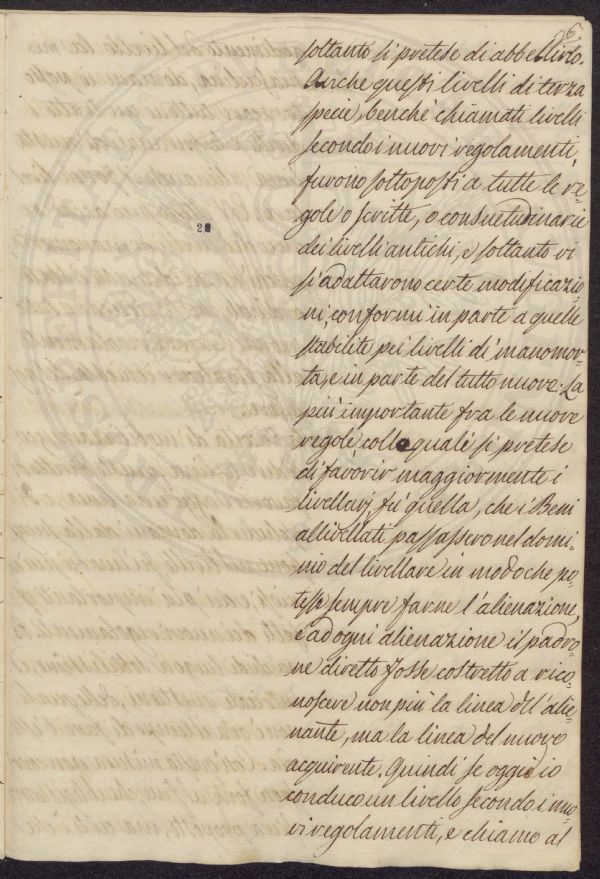 6.
soltanto si pretese di abbellirlo.
Anche questi livelli di terza
specie, benchè chiamati livelli
secondo i nuovi regolamenti,
furono sottoposti a tutte le re-
gole o scritte, o consuetudinarie
dei livelli antichi, e soltanto vi
s'adattarono certe modificazio-
ni, conformi in parte a quelle
stabilite pei livelli di manomor-
ta, e in parte del tutto nuove. La
più importante fra le nuove
regole colle quali si pretese
di favorir maggiormente i
livellarj fù quella, che i Beni
allivellati passassero nel domi-
nio del livellare in modo che po-
tesse sempre farne l'alienazione,
e ad ogni alienazione il padro-
ne diretto fosse costretto a rico-
noscere non più la linea dell'alie-
nante, ma la linea del nuovo
acquirente. Quindi se oggi io
conduco un livello secondo i nuo-
vi regolamenti, e chiamo al